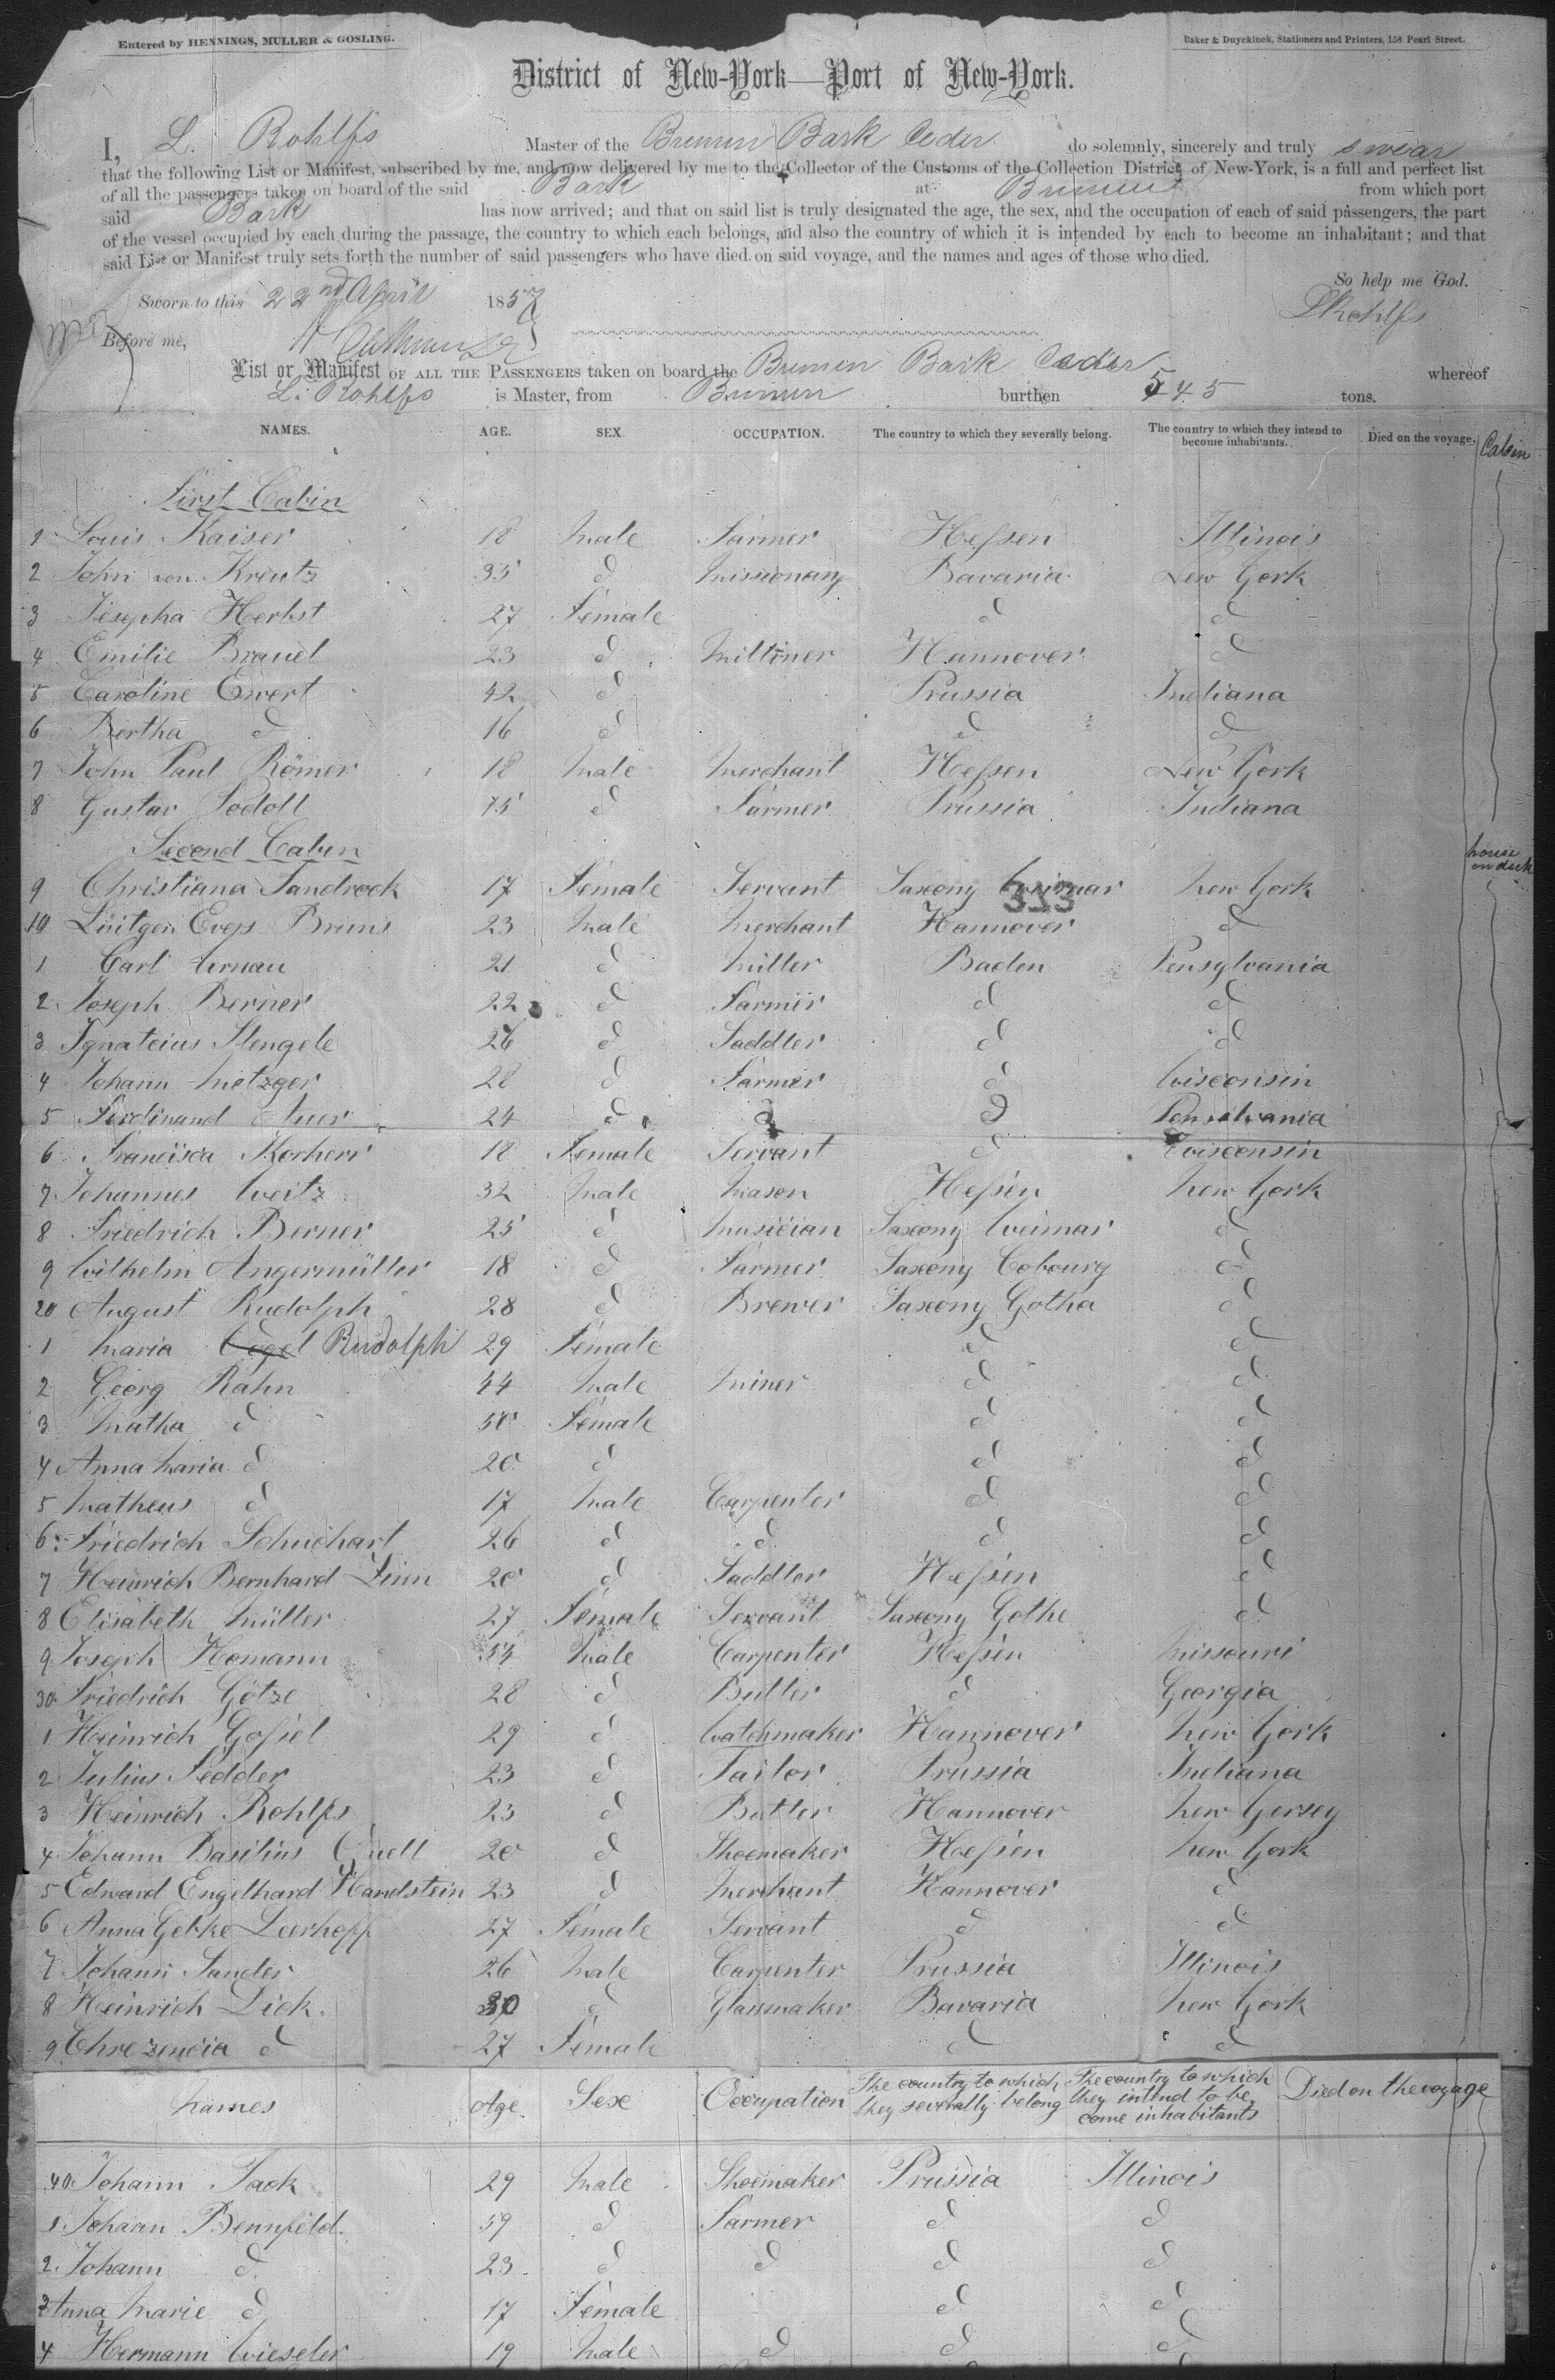 Entered by HENNINGS, MULLER & GOSLING.
Baker & Duyckinck, Stationers and Printers, 158 Pearl Street.
District of New-York—Port of New-York.
I, L. Rohlfs Master of the Bremen Bark Ceder do solemnly, sincerely and truly swear
that the following List or Manifest, subscribed by me, and now delivered by me to the Collector of the Customs of the Collection District of New-York, is a full and perfect list
of all the passengers taken on board of the said Bark at Bremen from which port
said Bark has now arrived; and that on said list is truly designated the age, the sex, and the occupation of each of said passengers, the part
of the vessel occupied by each during the passage, the country to which each belongs, and also the country of which it is intended by each to become an inhabitant; and that
said List or Manifest truly sets forth the number of said passengers who have died on said voyage, and the names and ages of those who died.
So help me God.
Sworn to this 22nd April 1857
LRohlfs
Before me,
List or Manifest OF ALL THE PASSENGERS taken on board the Bremen Bark Ceder whereof
L. Rohlfs is Master, from Bremen burthen 545 tons.
NAMES. AGE. SEX. OCCUPATION. The country to which they severally belong. The country to which they intend to become inhabitants. Died on the voyage. Cabin
First Cabin
1 Louis Kaiser 18 Male Farmer Hessen Illinois
2 John von Kreutz 35 d Missionary Bavaria New York
3 Josepha Herbst 27 Female d d
4 Emilie Brauel 23 d Milliner Hannover d
5 Caroline Ewert 42 d Prussia Indiana
6 Bertha d 16 d d d
7 John Paul Römer 18 Male Merchant Hessen New York
8 Gustav Podoll 75 d Farmer Prussia Indiana
Second Cabin
house on deck
9 Christiana Sandrock 17 Female Servant Saxony Weimar New York
313
10 Lüitgen Evers Bruns 23 Male Merchant Hannover d
1 Carl Arnau 21 d Miller Baden Pensylvania
2 Joseph Berner 22 d Farmer d d
3 Ignateius Stengele 26 d Saddler d d
4 Johann Metzger 28 d Farmer d Wisconsin
5 Ferdinand Auer 24 d d d Pensilvania
6 Francisca Korherr 18 Female Servant d Wisconsin
7 Johannes Weitz 32 Male Mason Hessen New York
8 Friedrich Berner 25 d Musician Saxony Weimar d
9 Wilhelm Angermüller 18 d Farmer Saxony Cobourg d
20 August Rudolph 28 d Brewer Saxony Gotha d
1 Maria Vogel Rudolph 29 Female d d
2 Georg Rahn 44 Male Miner d d
3 Matha d 50 Female d d
4 Anna Maria d 20 d d d
5 Matheus d 17 Male Carpenter d d
6 Friedrich Schuchart 26 d d d d
7 Heinrich Bernhard Finn 20 d Saddler Hessen d
8 Elisabeth Müller 27 Female Servant Saxony Gothe d
9 Joseph Homann 54 Male Carpenter Hessen Missouri
30 Friedrich Götze 28 d Butler d Georgia
1 Heinrich Gossel 29 d Watchmaker Hannover New York
2 Julius Fedder 23 d Tailor Prussia Indiana
3 Heinrich Rohlfs 23 d Butler Hannover New Gersey
4 Johann Basilius Quell 20 d Shoemaker Hessen New York
5 Edward Engelhard Handstein 23 d Merchant Hannover d
6 Anna Gebke Leerhoff 27 Female Servant d d
7 Johann Sander 26 Male Carpenter Prussia Illinois
8 Heinrich Lick 30 d Glassmaker Bavaria New York
9 Chrezencia d 27 Female d d
Names Age Sex Occupation The country to which they severally belong The country to which they intend to become inhabitants Died on the voyage
40 Johann Tack 29 Male Shoemaker Prussia Illinois
1 Johann Bennfeld 59 d Farmer d d
2 Johann d 23 d d d d
3 Anna Marie d 17 Female d d
4 Hermann Wieseler 19 Male d d d